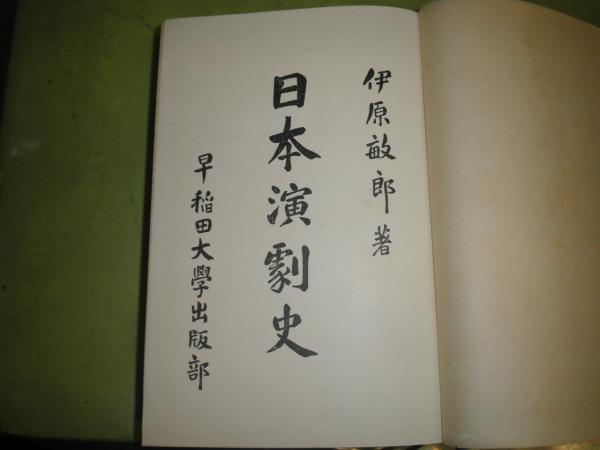 伊原敏郎著
日本演劇史
早稲田大學出版部